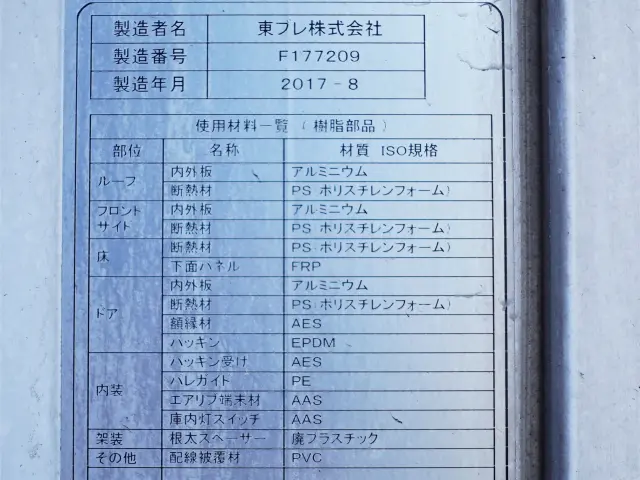 製造者名 東プレ株式会社
製造番号 F177209
製造年月 2017-8
使用材料一覧 (樹脂部品)
部位 名称 材質 ISO規格
ルーフ 内外板 アルミニウム
断熱材 PS(ポリスチレンフォーム)
フロント サイド 内外板 アルミニウム
断熱材 PS(ポリスチレンフォーム)
床 断熱材 PS(ポリスチレンフォーム)
下面パネル FRP
ドア 内外板 アルミニウム
断熱材 PS(ポリスチレンフォーム)
額縁材 AES
パッキン EPDM
内装 パッキン受け AES
ハレガイト PE
エアリブ端末材 AAS
庫内灯スイッチ AAS
架装 根太スペーサー 廃プラスチック
その他 配線被覆材 PVC